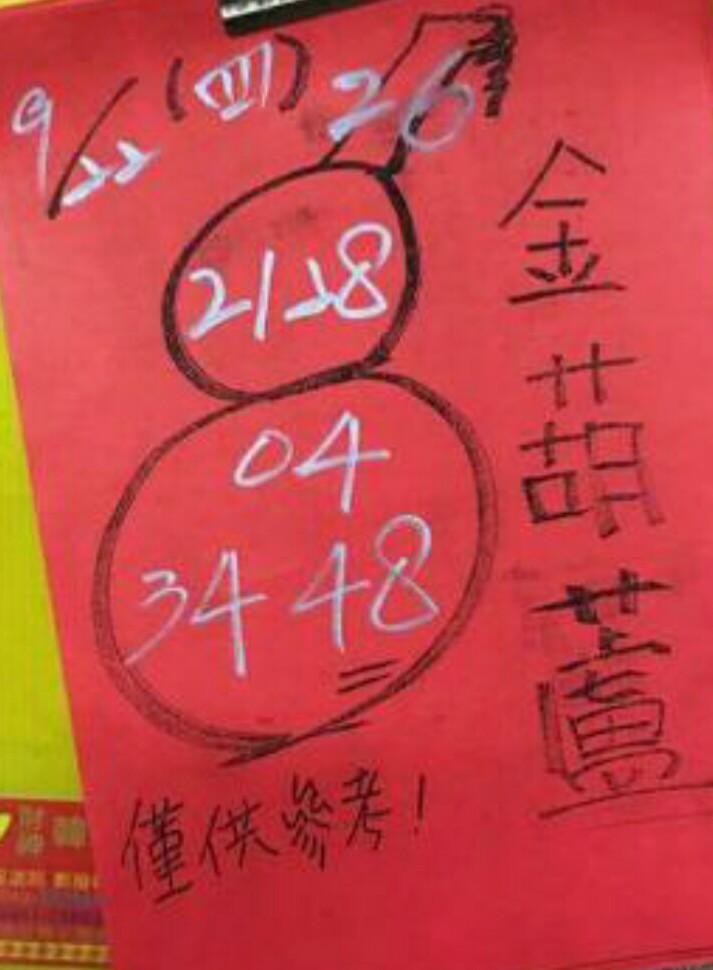 9/22 (四) 26
金葫蘆
21 28
04
34 48
僅供參考!